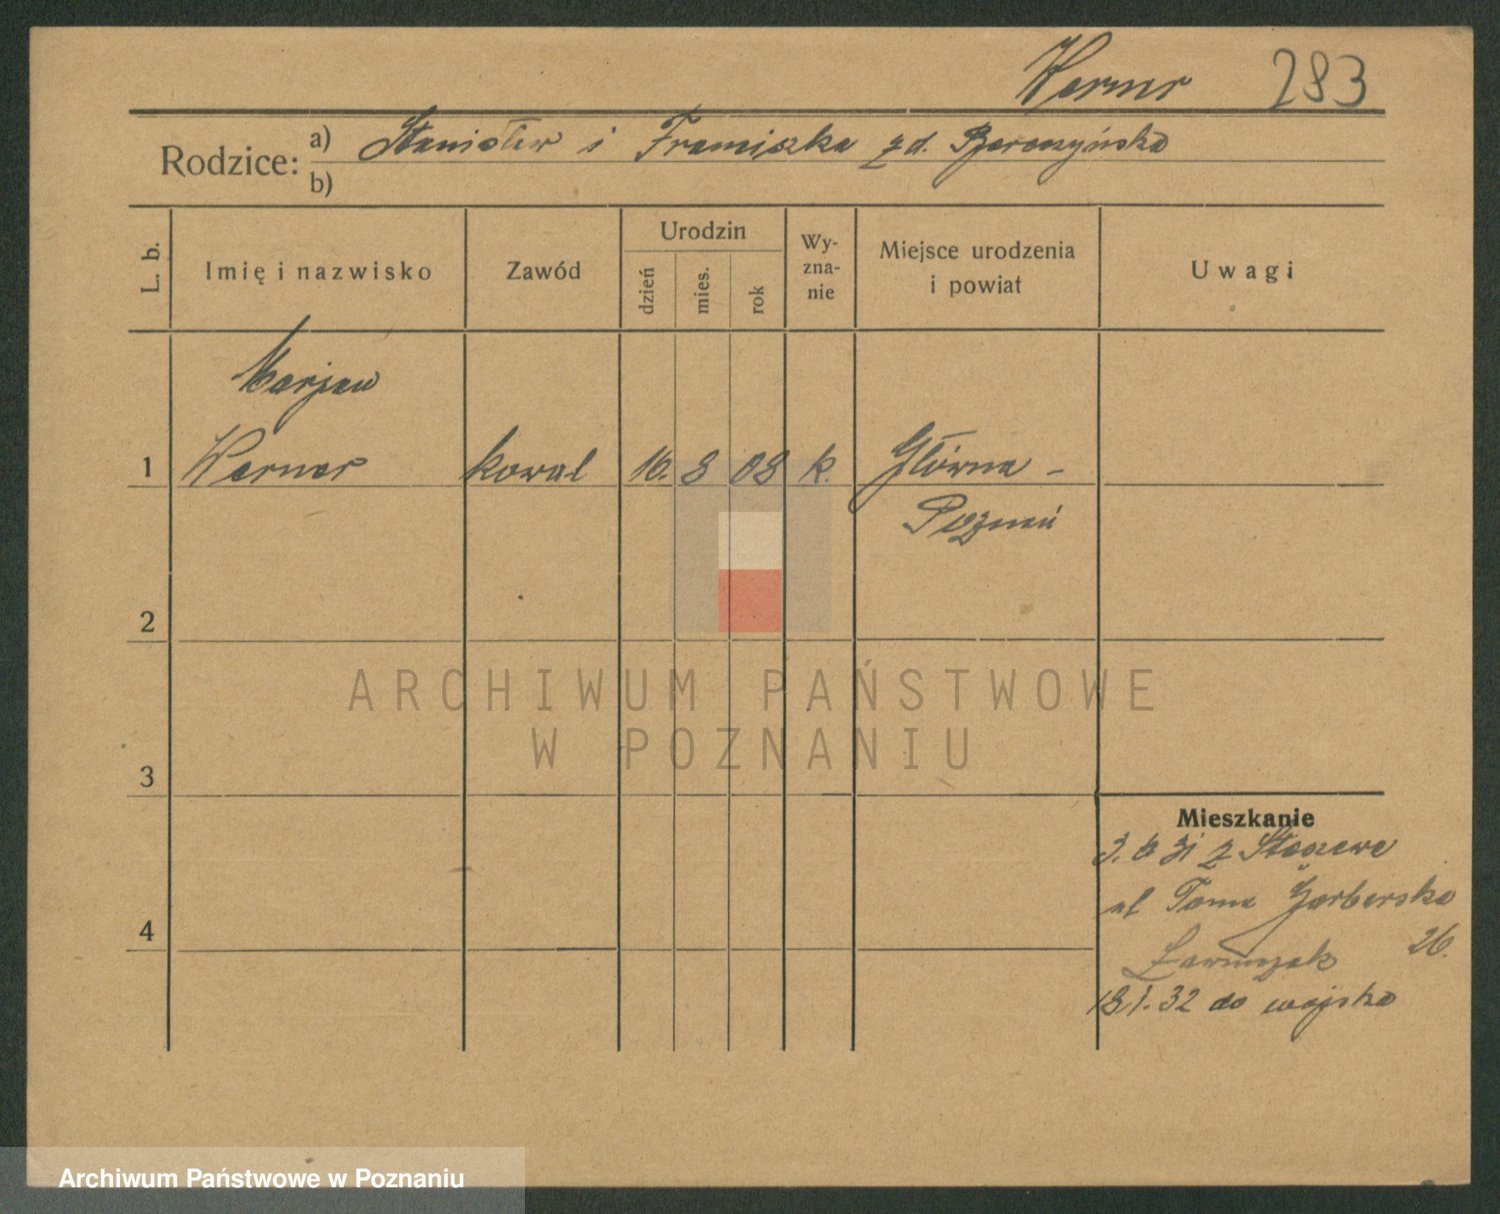 Werner 283
Rodzice: a) Stanisław i Franciszka z d.
b)
L. b. Imię i nazwisko Zawód Urodzin dzień mies. rok Wy-zna-nie Miejsce urodzenia i powiat Uwagi
Marjan
1 Werner kowal 16. 8 08 k. Główna -
Poznań
2
ARCHIWUM PAŃSTWOWE
W POZNANIU
3
Mieszkanie
3. 6 31 z
ul Tama Garbarska
4
26.
18.1.32 do wojska
Archiwum Państwowe w Poznaniu